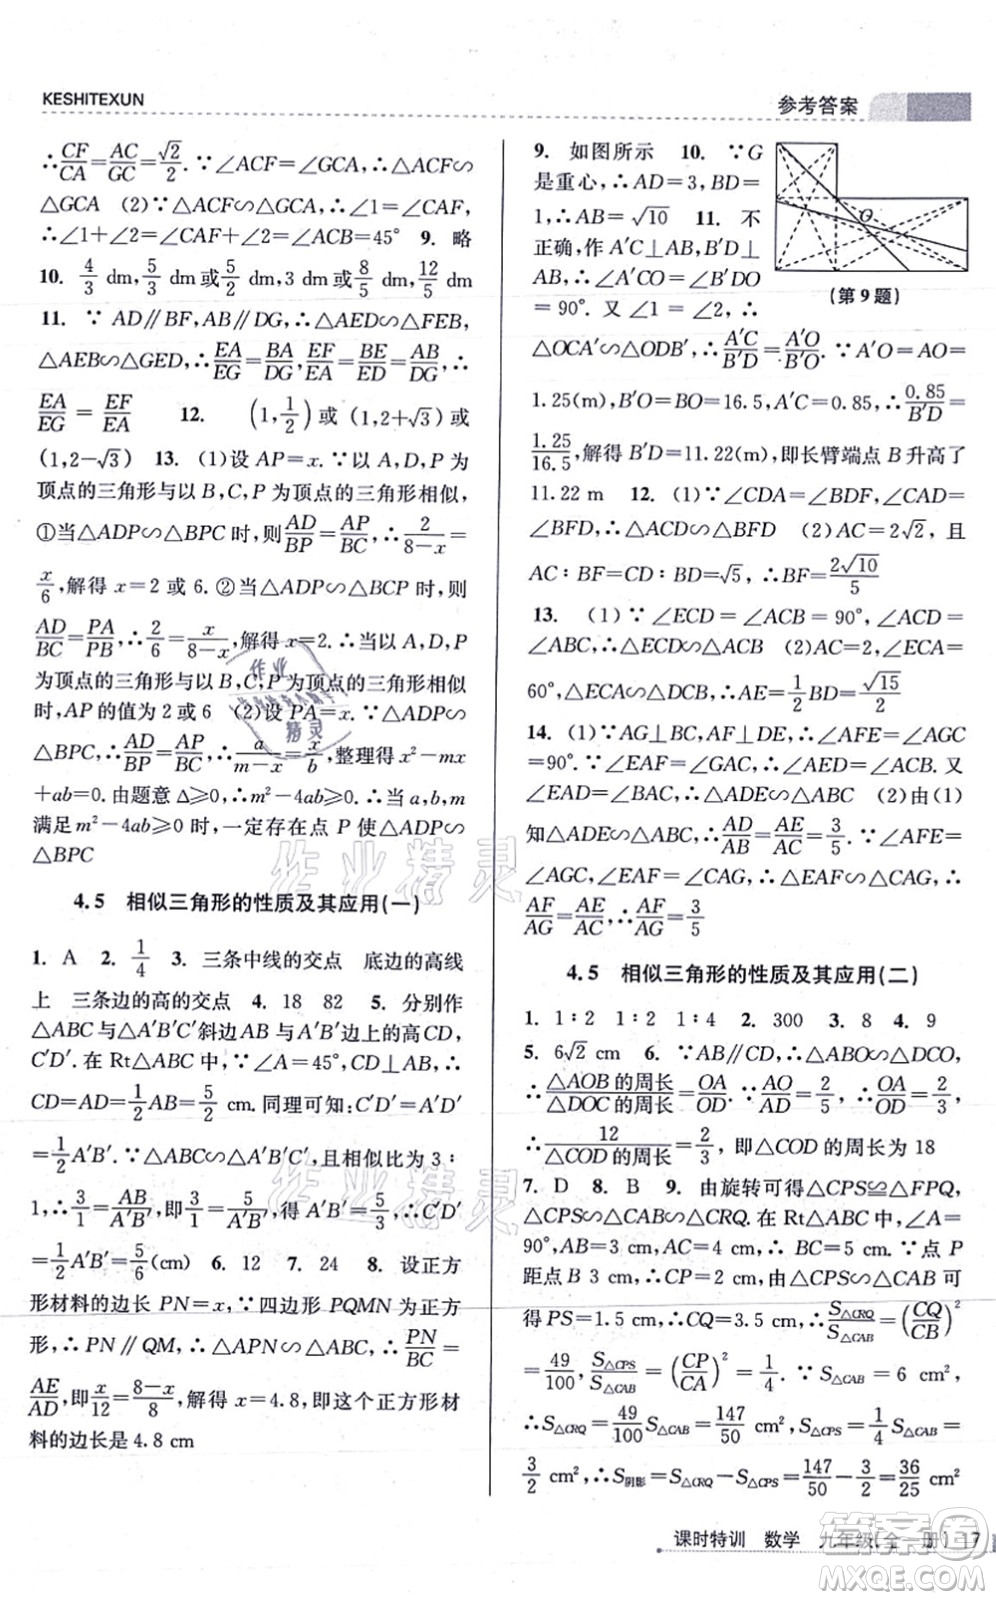 KESHITEXUN
参考答案
∴CF/CA=AC/GC=√2/2.∵∠ACF=∠GCA,∴△ACF∽
△GCA (2)∵△ACF∽△GCA,∴∠1=∠CAF,
∴∠1+∠2=∠CAF+∠2=∠ACB=45° 9. 略
10. 4/3 dm,5/3 dm或5/2 dm,3 dm或8/5 dm,12/5 dm
11. ∵ AD∥BF,AB∥DG,∴△AED∽△FEB,
△AEB∽△GED,∴EA/EG=BA/DG,EF/EA=BE/ED=AB/DG,∴
EA/EG=EF/EA 12. (1,1/2)或(1,2+√3)或
(1,2-√3) 13. (1)设 AP=x.∵以 A,D,P 为
顶点的三角形与以 B,C,P 为顶点的三角形相似,
①当△ADP∽△BPC 时,则AD/BP=AP/BC,∴2/(8-x)=
x/6,解得 x=2 或 6.②当△ADP∽△BCP 时,则
AD/BC=PA/PB,∴2/6=x/(8-x),解得 x=2.∴以 A,D,P
为顶点的三角形与以 B,C,P 为顶点的三角形相似
时,AP 的值为 2 或 6 (2)设 PA=x.∵△ADP∽
△BPC,∴AD/BP=AP/BC,∴a/(m-x)=x/b,整理得 x²-mx
+ab=0.由题意 Δ≥0,∴m²-4ab≥0.∴当 a,b,m
满足 m²-4ab≥0 时,一定存在点 P 使△ADP∽
△BPC
4.5 相似三角形的性质及其应用(一)
1. A 2. 1/4 3. 三条中线的交点 底边的高线
上 三条边的高的交点 4. 18 82 5. 分别作
△ABC 与△A′B′C′斜边 AB 与 A′B′边上的高 CD,
C′D′.在 Rt△ABC 中,∵∠A=45°,CD⊥AB,∴
CD=AD=1/2AB=5/2 cm.同理可知:C′D′=A′D′
=1/2A′B′.∵△ABC∽△A′B′C′,且相似比为 3∶
1,∴3/1=AB/A′B′,即3/1=5/A′B′,得 A′B′=5/3,∴C′D′
=1/2A′B′=5/6(cm) 6. 12 7. 24 8. 设正方
形材料的边长 PN=x,∵四边形 PQMN 为正方
形,∴PN∥QM,∴△APN∽△ABC,∴PN/BC=
AE/AD,即x/12=(8-x)/8,解得 x=4.8,即这个正方形材
料的边长是 4.8 cm
9. 如图所示 10. ∵G
是重心,∴AD=3,BD=
1,∴AB=√10 11. 不
正确,作 A′C⊥AB,B′D⊥
AB,∴∠A′CO=∠B′DO
=90°.又∵∠1=∠2,∴
O
(第 9 题)
△OCA′∽△ODB′,∴A′C/B′D=A′O/B′O.∵A′O=AO=
1.25(m),B′O=BO=16.5,A′C=0.85,∴0.85/B′D=
1.25/16.5,解得 B′D=11.22(m),即长臂端点 B 升高了
11.22 m 12. (1)∵∠CDA=∠BDF,∠CAD=
∠BFD,∴△ACD∽△BFD (2)AC=2√2,且
AC∶BF=CD∶BD=√5,∴BF=2√10/5
13. (1)∵∠ECD=∠ACB=90°,∠ACD
=∠ABC,∴△ECA∽△DCB (2)∵∠ACE=
60°,△ECA∽△DCB,∴AE=1/2BD=√15/2
14. (1)∵AG⊥BC,AF⊥DE,∴∠AFE=∠AGC
=90°.∵∠EAF=∠GAC,∴∠AED=∠ACB.又
∠EAD=∠CAB,∴△ADE∽△ABC (2)由(1)
知△ADE∽△ABC,∴AD/AB=AE/AC=3/5.∵∠AFE=
∠AGC=90°,∠EAF=∠CAG,∴△EAF∽△CAG,∴
AF/AG=AE/AC,∴AF/AG=3/5
4.5 相似三角形的性质及其应用(二)
1. 1∶2 1∶2 1∶4 2. 300 3. 8 4. 9
5. 6√2 cm 6. ∵AB∥CD,∴△ABO∽△DCO,
∴△AOB的周长/△DOC的周长=OA/OD.∵AO/AD=2/5,∴OA/OD=2/3,
∴12/△COD的周长=2/3,即△COD 的周长为 18
7. D 8. B 9. 由旋转可得△CPS≌△FPQ,
△CPS∽△CAB∽△CRQ.在 Rt△ABC 中,∠A=
90°,AB=3,BC=5,∴AC=4.∵点 P
距点 B 3 cm,∴CP=2 cm.由△CPS∽△CAB 可
得 PS=1.5 cm,∴CQ=3.5 cm,∴S△CRQ/S△CAB=(CQ/CB)²
=49/100,S△CPS/S△CAB=(CP/CA)²=1/4.∵S△CAB=6 cm²,
∴S△CRQ=49/100S△CAB=147/50 cm²,S△CPS=1/4S△CAB=
3/2 cm²,∴S阴影=S△CRQ-S△CPS=147/50-3/2=36/25 cm²
课时特训 数学 九年级(全一册) 17
作业精灵
作业精灵
答案圈
MXQE.COM